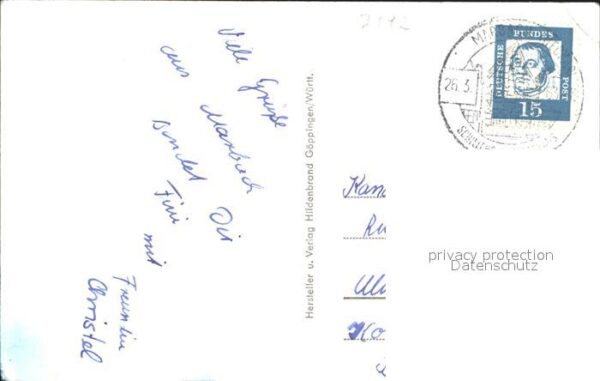 2112
Viele Grüße
aus Marbach
sendet Dir
Fini mit
Freundin
Christel
Hersteller u. Verlag Hildenbrand Göppingen/Württ.
26.3.
DEUTSCHE BUNDES POST
15
Kan
Ulm
privacy protection
Datenschutz